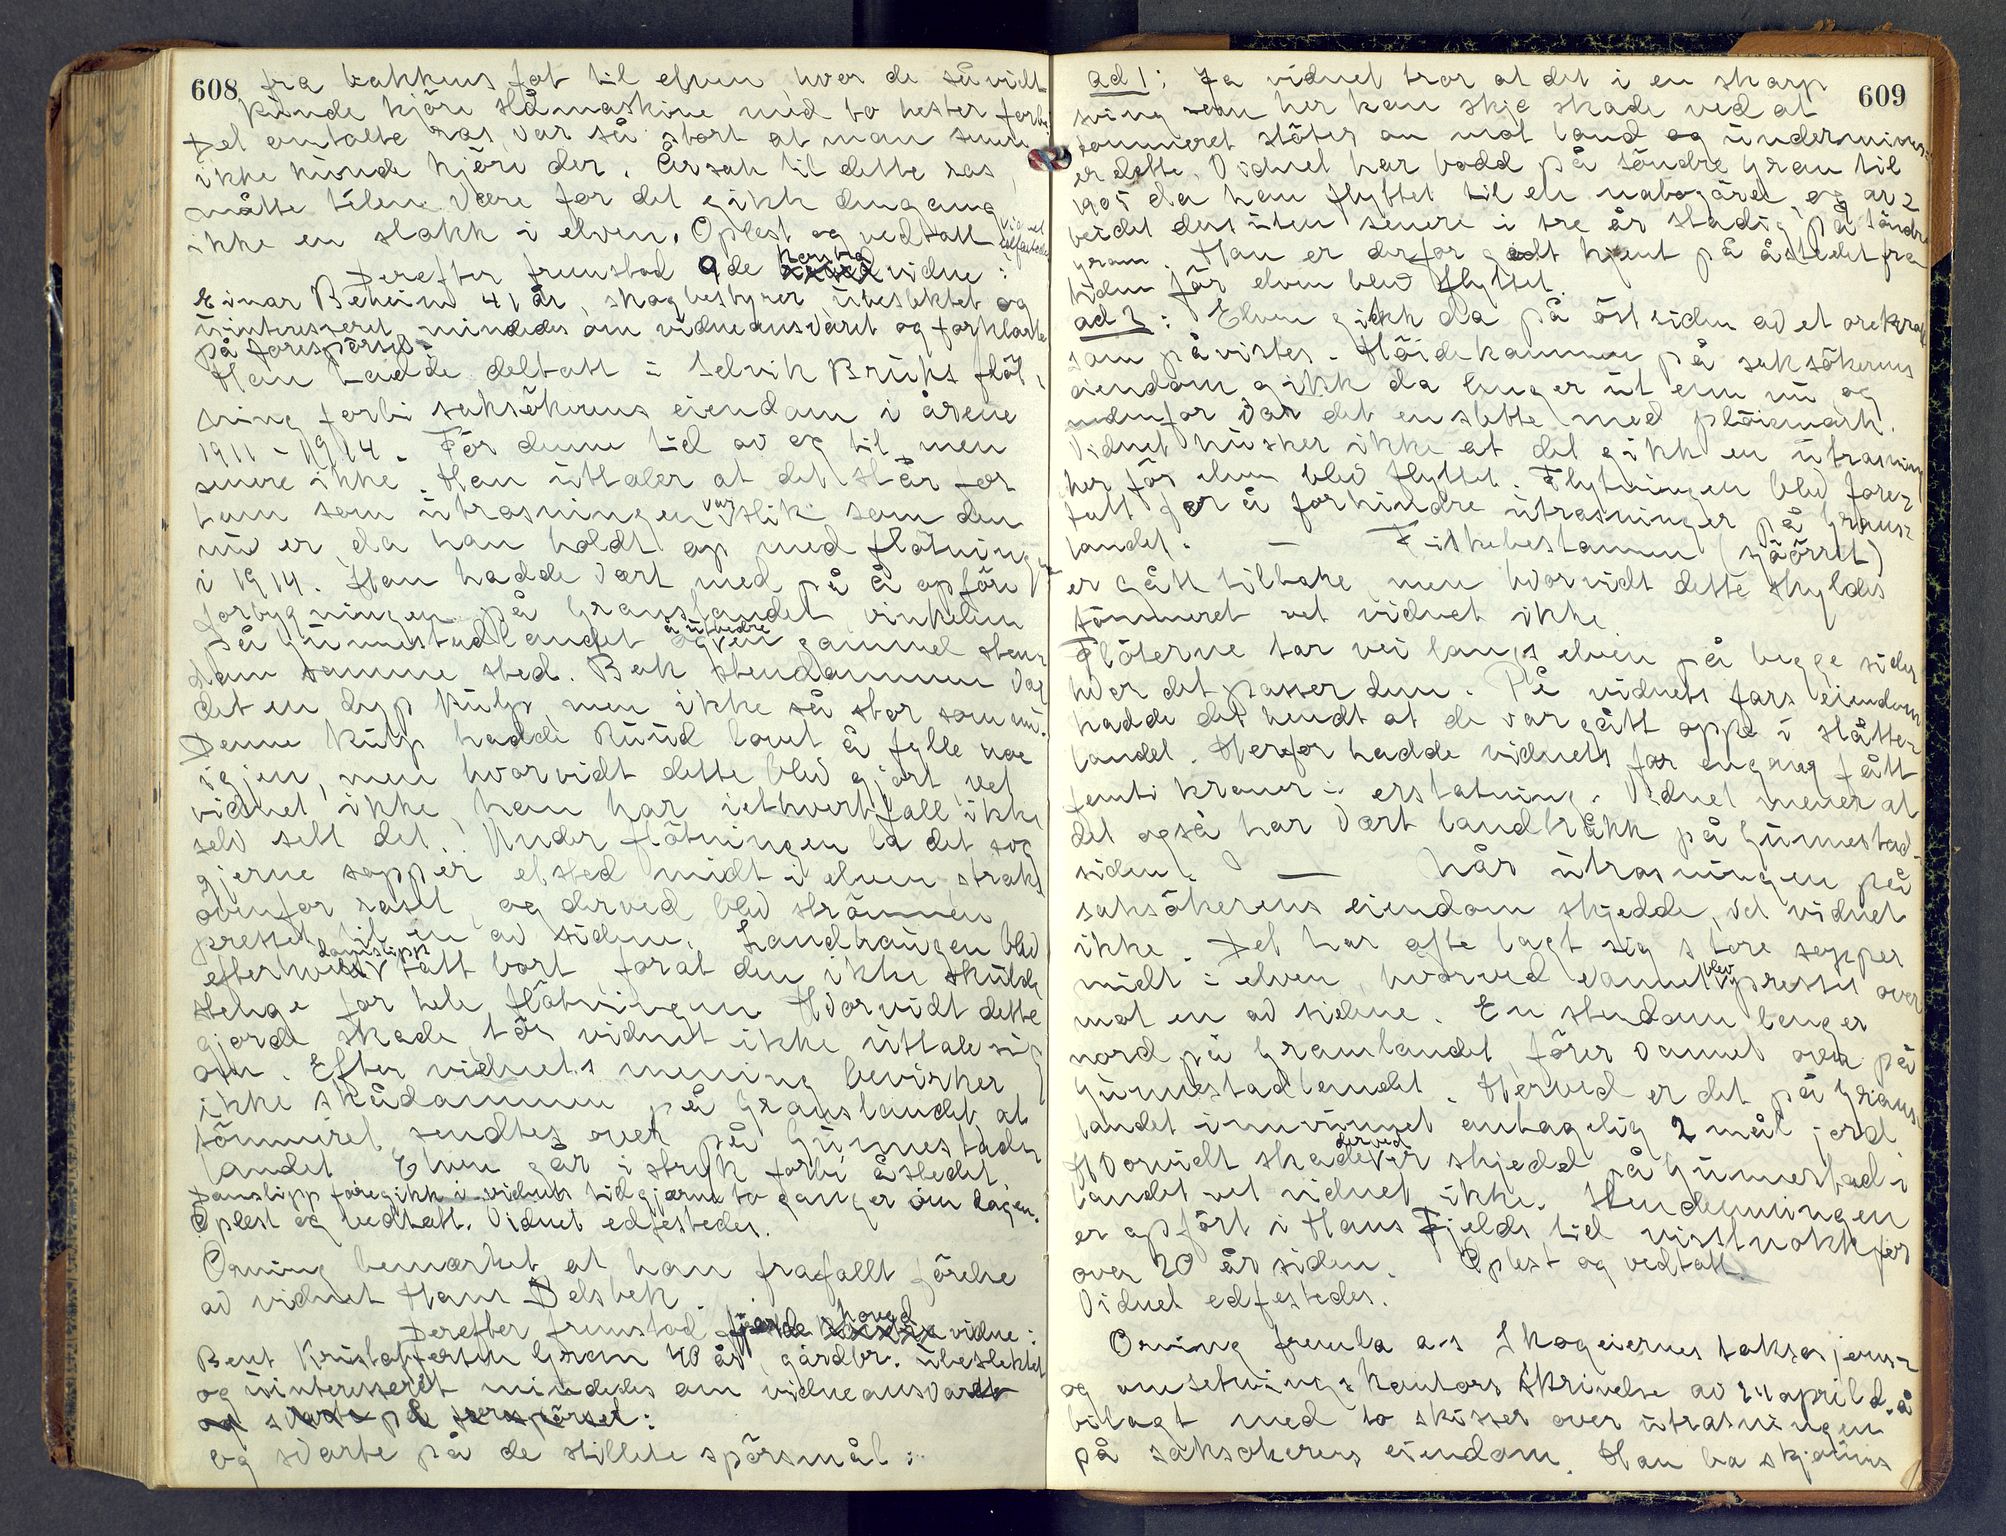 608
fra bakkens fot til elven hvor de såvidt
kunde kjöre slåmaskine med to hester forbi
Det omtalte ras var så stort at man senere
ikke kunde kjöre der. Årsak til dette ras,
måtte tilen være for det gikk dengang
ikke en stokk i elven. Oplest og vedtatt vidnet edfæstedes
Derefter fremstod 9de vidne:
Einar Beheim 41 år, skogbestyrer ubeslektet og
uinteressert mindedes om vidneansvaret og forklarte
på forespörsel:
Han hadde deltatt i Selvik Bruks flöt-
ning forbi saksökerens eiendom i årene
1911 - 1914. För denne tid av og til, men
senere ikke. Han uttaler at det står for
ham som utrasningen var slik som den
nu er, da han holdt op med flötningen
i 1914. Han hadde vært med på å opföre
forbygningen på Gramslandet vinkelen
på Gunnestadlandet å utbedre en gammel sten-
dam samme sted. Bak stendammen var
det en dyp kulp men ikke så stor som nu.
Denne kulp hadde Ruud lovet å fylle noe
igjen, men hvorvidt dette blev gjort vet
vidnet ikke, han har iethvertfall ikke
selv sett det. Under flötningen la det sig
gjerne sopper etsted midt i elven straks
ovenfor rastt, og derved blev strömmen
presset til en av sidene. Landhaugen blev
efterhvert damslipp tatt bort forat den ikke skulde
stenge for hele flötningen. Hvorvidt dette
gjorde skade tör vidnet ikke uttale sig
om. Efter vidnets mening bevirker
ikke skådammene på Gramslandet at
tömmeret sendtes over på Gunnestad-
landet. Elven går i stryk forbi åstedet
Damslipp foregikk i vidnets tid gjerne to ganger om dagen.
Oplest og vedtatt. Vidnet edfestedes.
Orning bemærket at han frafallt förelse
av vidnet Hans Delsbek.
Derefter fremstod fjerde hoved vidne:
Bent Kristoffersen Gram 40 år, gårdbr. ubeslektet
og uinteressert mindedes om vidneansvaret
og svarte på forespörsel:
og svarte på de stillete spörsmål:
609
ad 1: Ja vidnet tror at det i en skarp
sving som her kan skje skade ved at
tömmeret stöter an mot land og undermine-
er dette. Vidnet har bodd på söndre Gram til
1905 da han flyttet til en nabogård og ar-
beidet desuten senere i tre år stadig på söndre
Gram. Han er derfor godt kjent på åstedet fra
tiden för elven blev flyttet.
ad 2: Elven gikk da på östsiden av et orekratt
som påvistes. Höidekammen på saksökerens
eiendom gikk da lenger ut enn nu og
nedenfor var det en slette med plöiemark.
Vidnet husker ikke at det gikk en utrasning
her för elven blev flyttet. Flytningen blev fore-
tatt for å forhindre utrasninger på Grams-
landet. — Fiskebestannen (sjöörret)
er gått tilbake men hvorvidt dette skyldes
tömmeret vet vidnet ikke.
Flöterne tar vei langs elven på begge sider
hvor det passer dem. På vidnets fars eiendom
hadde det hendt at de var gått oppe i slåtte-
landet. Herfor hadde vidnets far engang fått
femti kroner i erstatning. Vidnet mener at
det også har vært landtråkk på Gunnestad-
siden. — Når utrasningen på
saksökerens eiendom skjedde, vet vidnet
ikke. Det har ofte lagt sig store sopper
midt i elven, hvorved vannet blev presset over
mot en av sidene. En stendam lenger
nord på Gramlandet förer vannet over på
Gunnestadlandet. Herved er det på Grams-
landet innvunnet antagelig 2 mål jord
Hvorvidt skade derved er skjedd på Gunnestad-
landet vet vidnet ikke. Stendemningen
er opfört i Hans Fjelds tid visstnokk for
over 20 år siden. Oplest og vedtatt.
Vidnet edfestedes.
Orning fremla a-s Skogeiernes taksasjons-
og omsetningskontors skrivelse av 24 april d.å
bilagt med to skisser over utrasningen
på saksökerens eiendom. Han ba skjönns